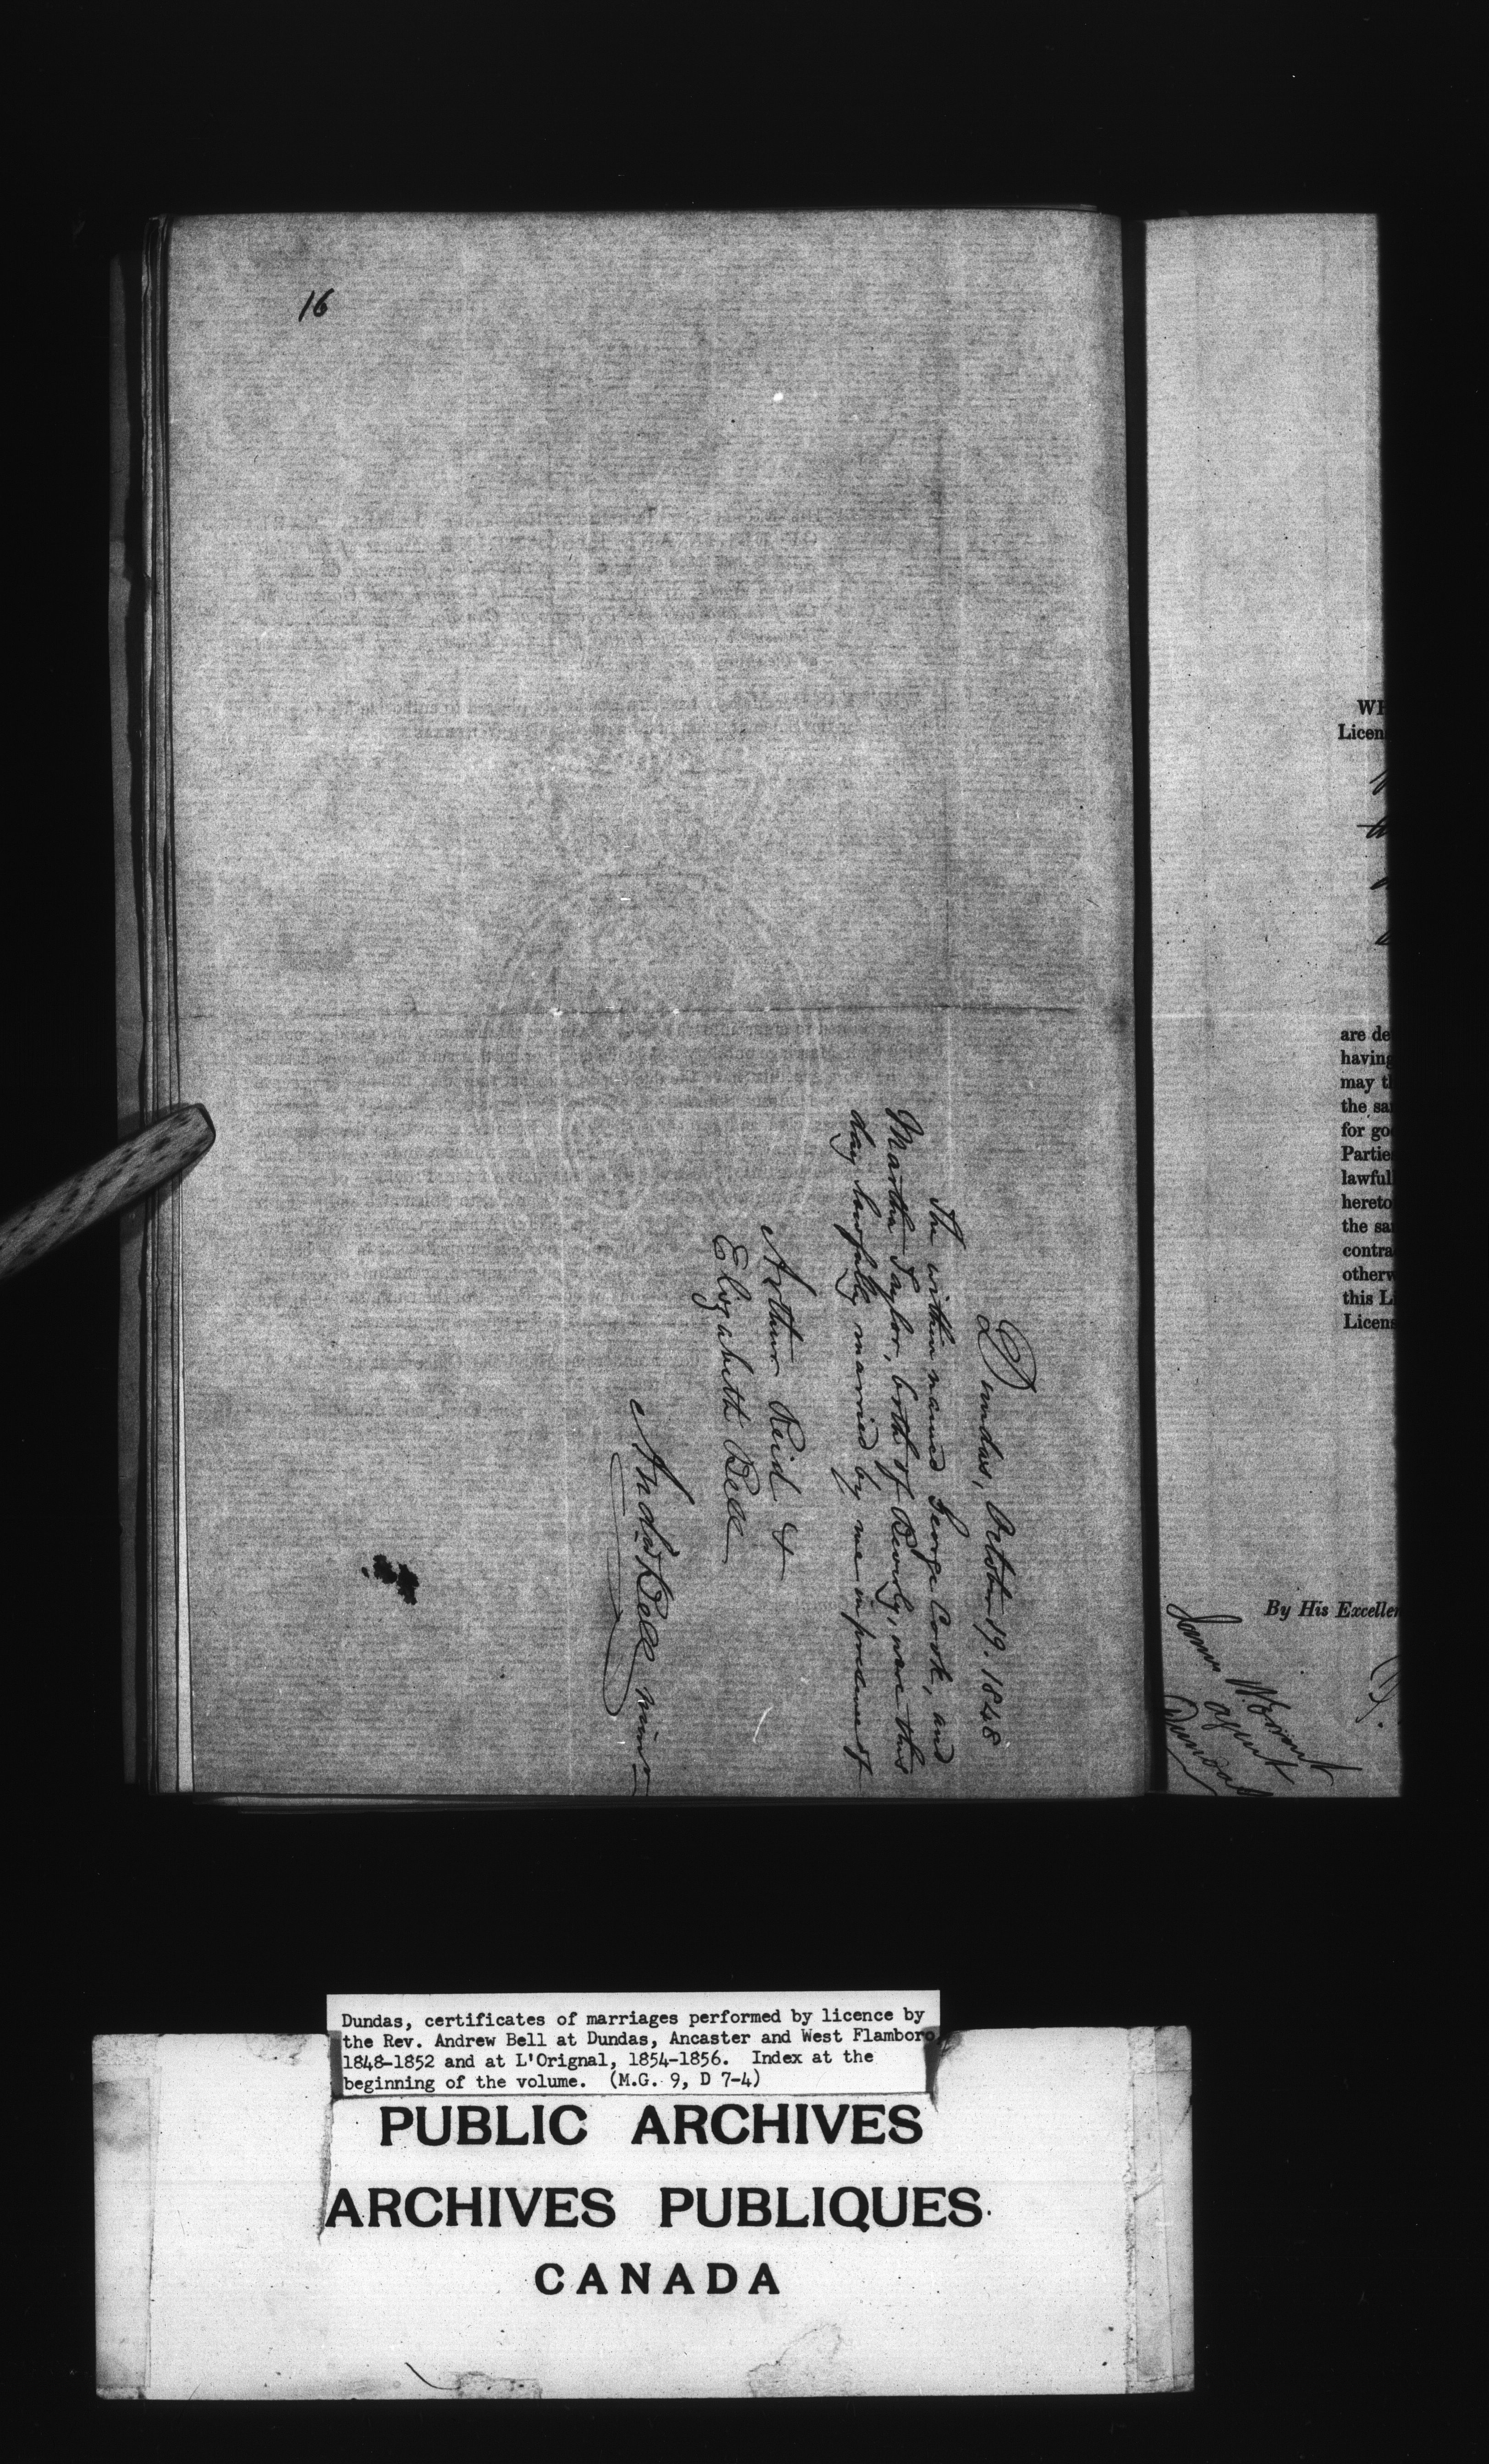 16
Dundas, October 19. 1848
The within named George Cook, and
Martha Taylor, both of Beverly, were this
day lawfully married by me in presence of
Arthur Reid &
Elizabeth Bell
Andw Bell minr
WH
Licen
are de
having
may th
the sa
for goo
Partie
lawful
hereto
the sa
contra
otherw
this L
Licens
By His Excellen
James
agent
Dundas
Dundas, certificates of marriages performed by licence by
the Rev. Andrew Bell at Dundas, Ancaster and West Flamboro,
1848-1852 and at L'Orignal, 1854-1856. Index at the
beginning of the volume. (M.G. 9, D 7-4)
PUBLIC ARCHIVES
ARCHIVES PUBLIQUES
CANADA